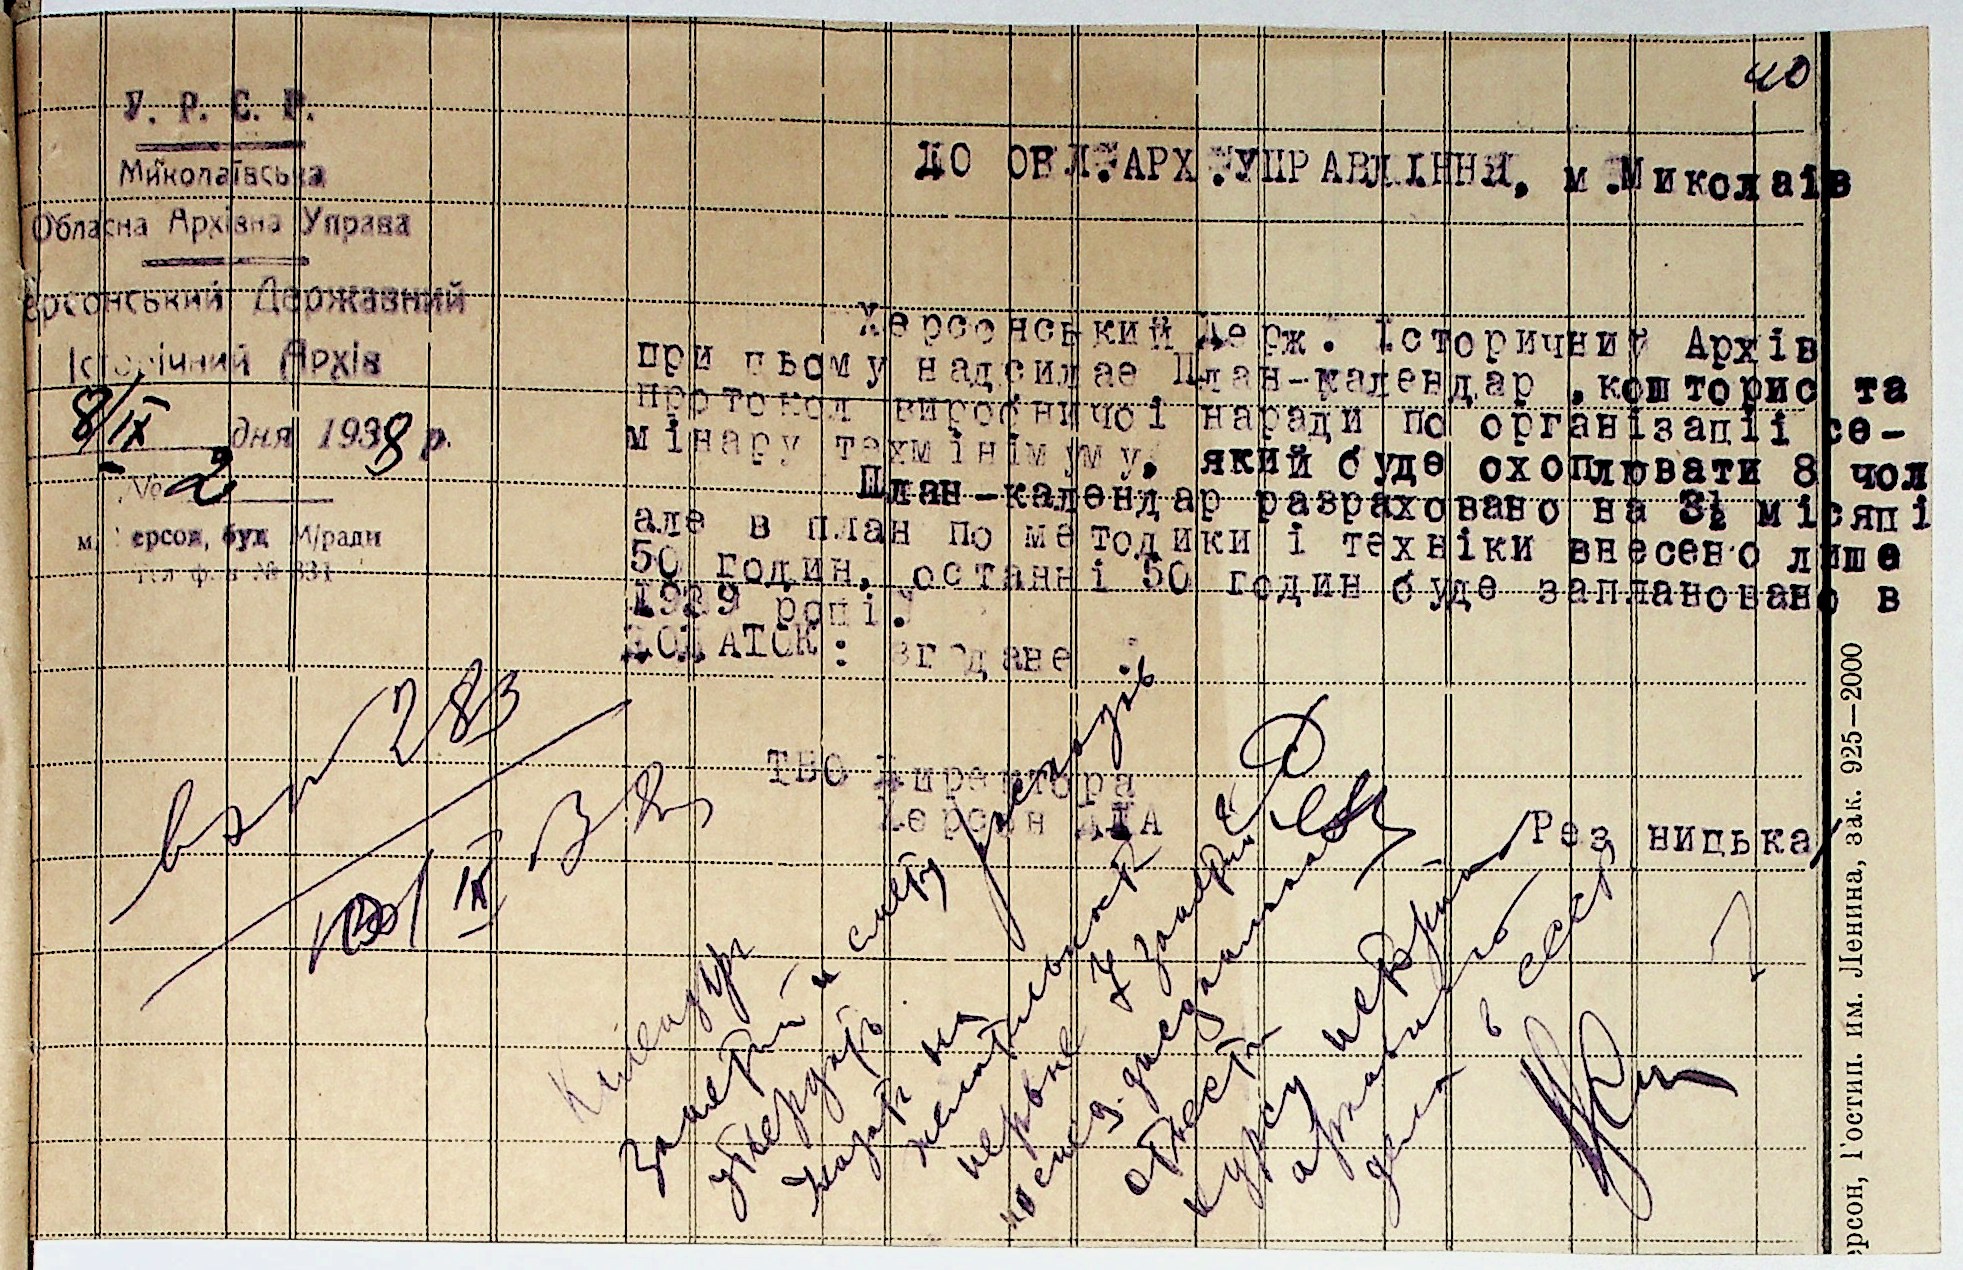 40
У. Р. С. Р.
Миколаївська
Обласна Архівна Управа
ерсонський Державний
Історічний Архів
8/IX дня 1938 р.
№ 2
м. Херсон, буд М/ради
Телеф. № 331
ДО ОБЛ.АРХ.УПРАВЛІННЯ, м.Миколаів
Херсонський Держ. Історичний Архів
при цьому надсилае План-календар ,кошторис та
протокол виробничоі наради по організаціі се-
мінару техмінімуму, який буде охоплювати 8 чол
План-календар разраховано на 3½ місяці
але в план по методики і техніки внесено лише
50 годин, останні 50 годин буде заплановано в
1939 році.
ДОДАТОК: згадане
ТВО Директора
Херсон ДІА
/Резницька/
вх № 283
10/IX 38
Календар
занетий и смету
утвердить
на
первые 7 занетий
послед.
отнести
курсу
архивного
дела в СССР
ерсон, Гостип. им. Ленина, зак. 925—2000